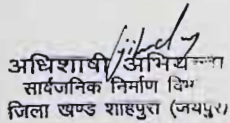 अधिशाषी अभियन्ता
सार्वजनिक निर्माण विभ
जिला खण्ड शाहपुरा (जयपुर)